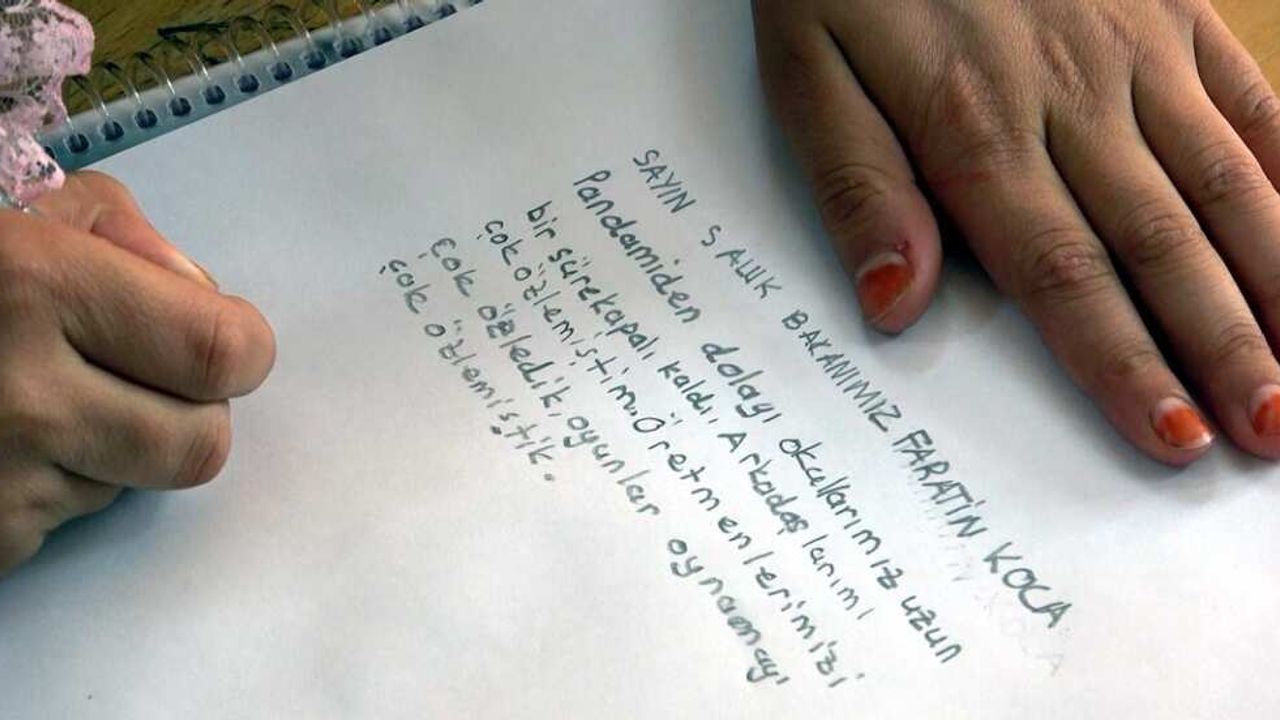 SAYIN SALIK BAKANIMIZ FARATİN KOCA
Pandamiden dolayı okullarımız uzun
bir sürekapalı kaldı, Arkadaşlarımı
çok özlemiştim. Öretmenlerimizi
çok özledik, oyunlar oynamayı
çok özlemiştik.